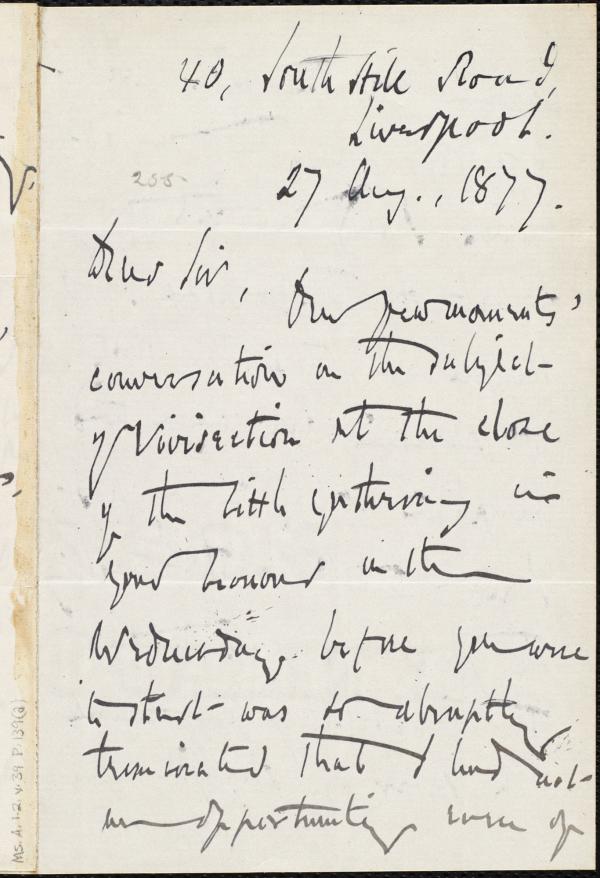 40, South Hill Road,
Liverpool.
255
27 Aug., 1877.
Dear Sir,
Our few moments'
conversation on the subject
of Vivisection at the close
of the little gathering in
your honour in the
Wednesday before you were
to start was so abruptly
terminated that I had not
an opportunity even of
MS. A. 1.2 v. 39 P. 139(a)